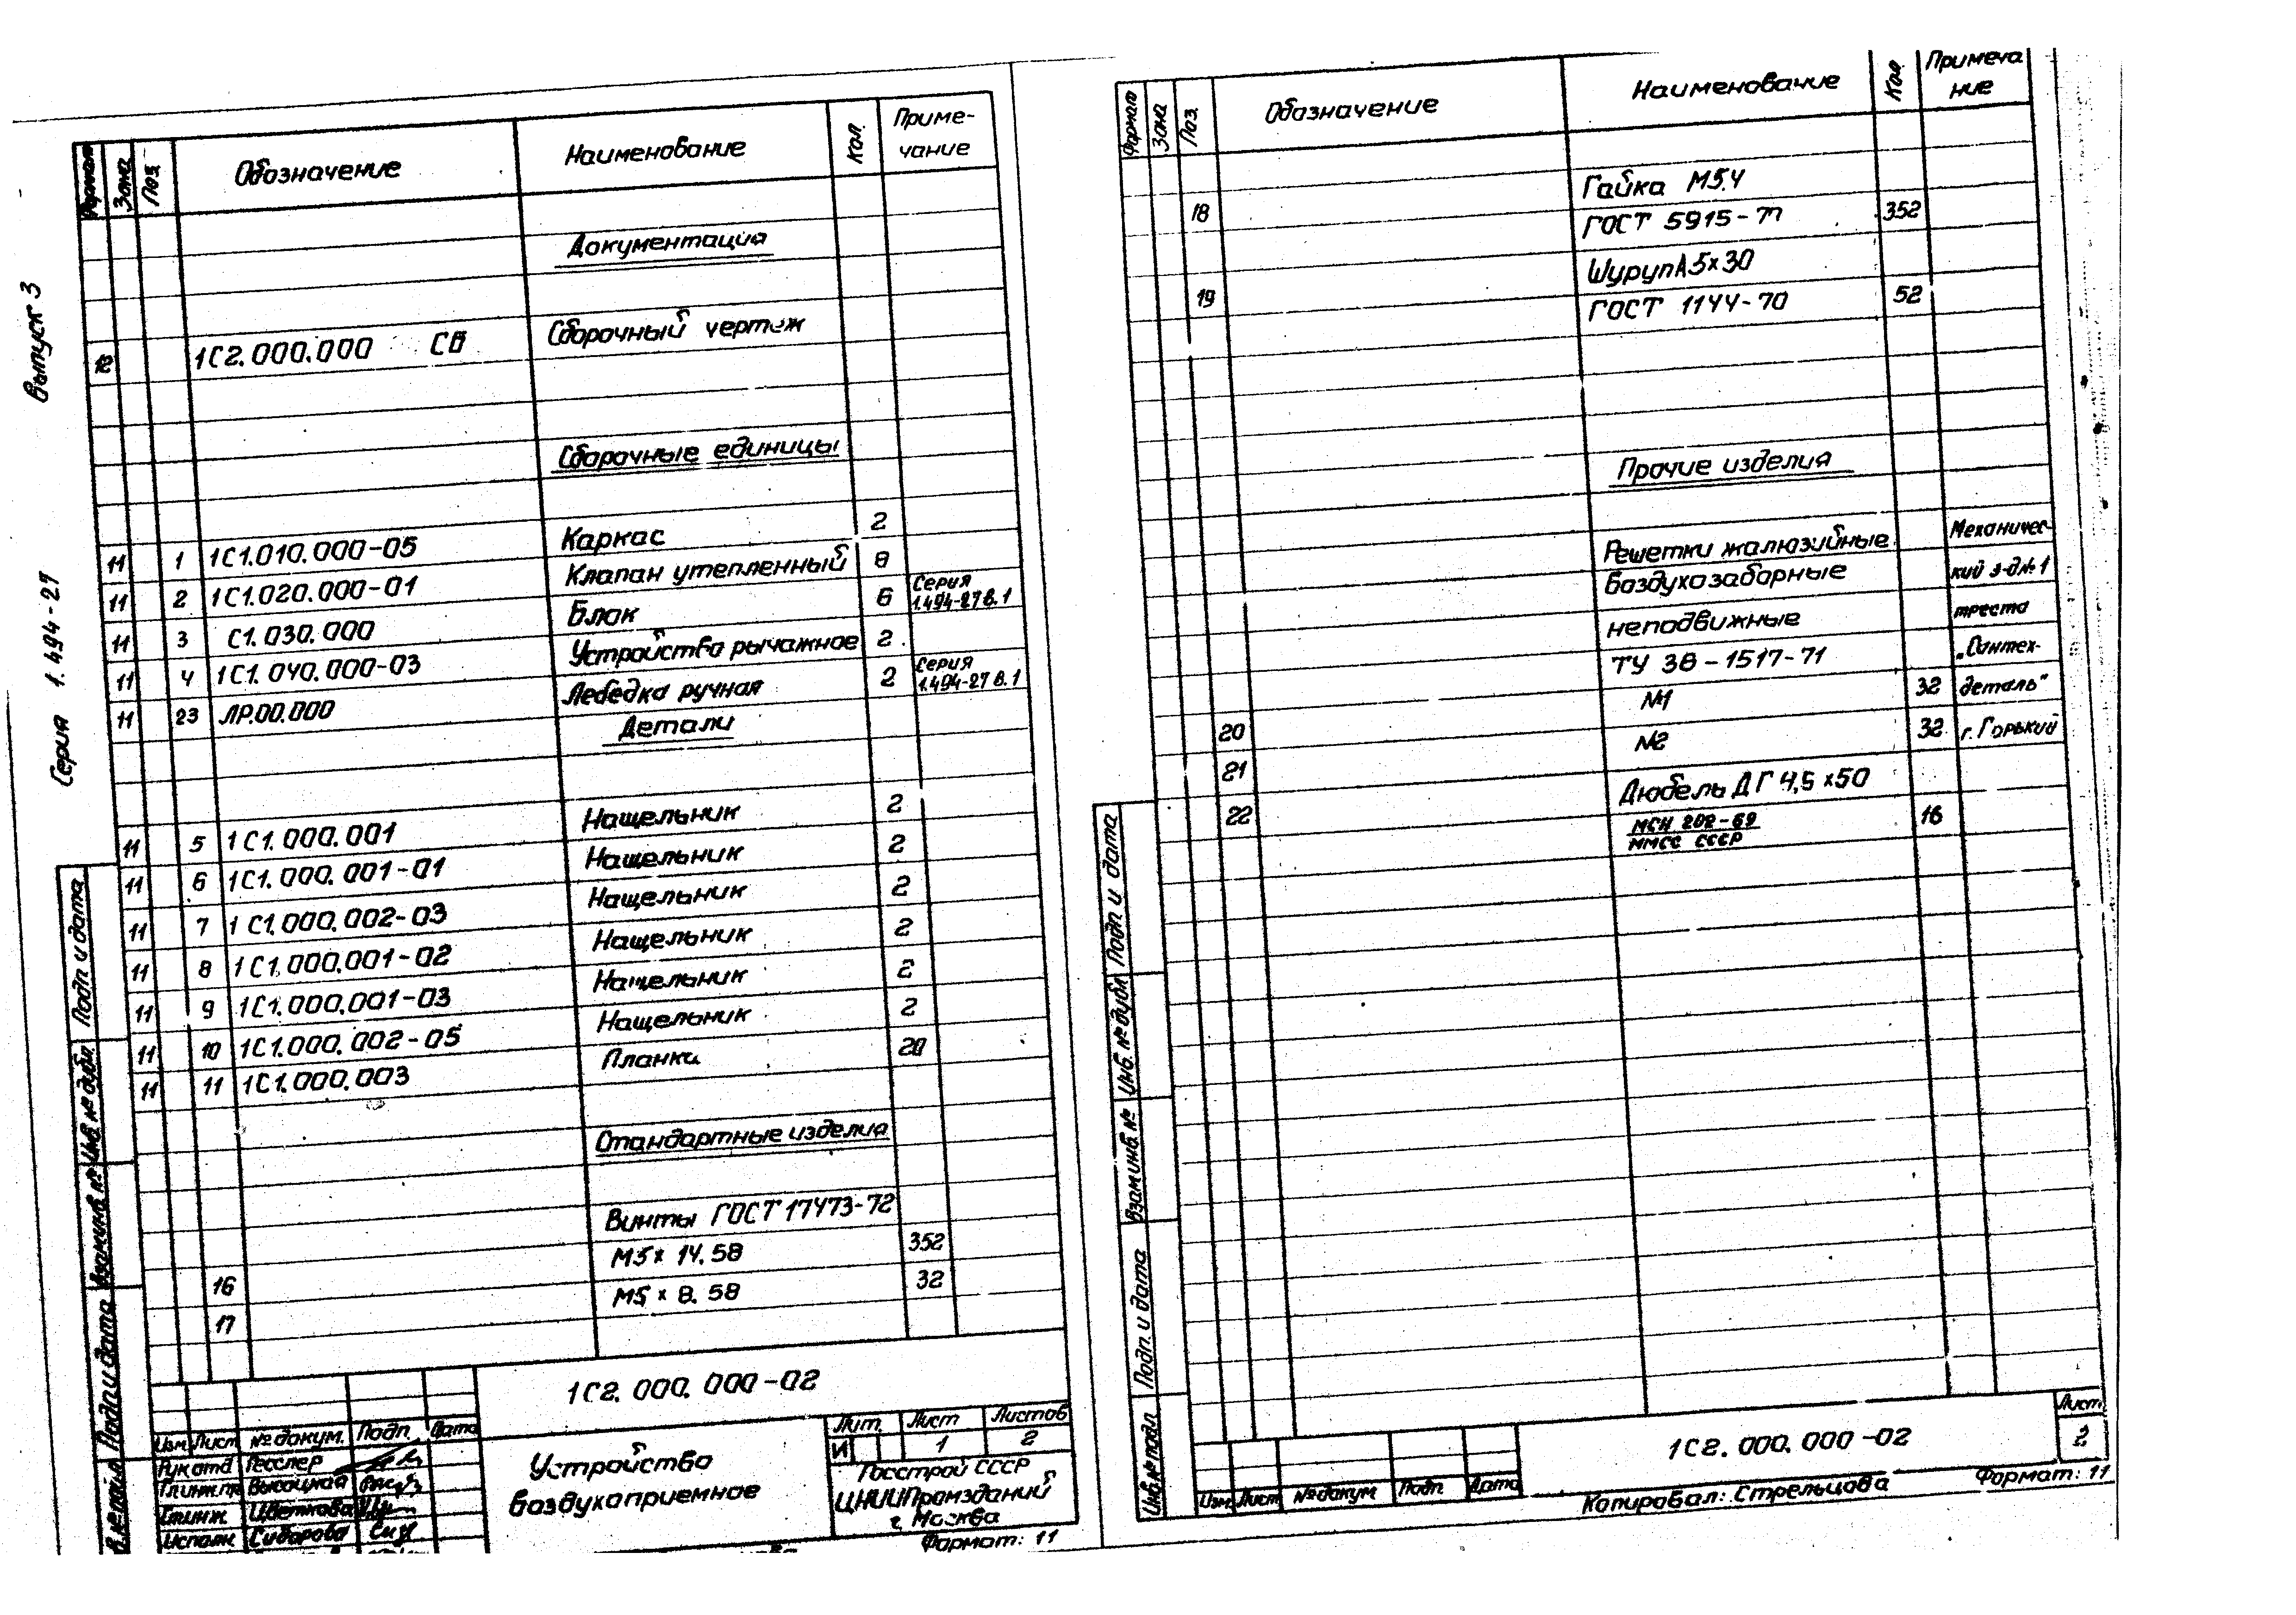 Выпуск 3
Серия 1.494-27
Формат Зона Поз. Обозначение Наименование Кол. Приме-
чание
Документация
12 1С2.000.000 СБ Сборочный чертеж
Сборочные единицы
11 1 1С1.010.000-05 Каркас 2
11 2 1С1.020.000-01 Клапан утепленный 8
11 3 С1.030.000 Блок 6 Серия
1.494-27 В.1
11 4 1С1.040.000-03 Устройство рычажное 2
11 23 ЛР.00.000 Лебедка ручная 2 Серия
1.494-27 В.1
Детали
11 5 1С1.000.001 Нащельник 2
11 6 1С1.000.001-01 Нащельник 2
11 7 1С1.000.002-03 Нащельник 2
11 8 1С1.000.001-02 Нащельник 2
11 9 1С1.000.001-03 Нащельник 2
11 10 1С1.000.002-05 Нащельник 2
11 11 1С1.000.003 Планка 20
Стандартные изделия
Винты ГОСТ 17473-72
16 М5х14.58 352
17 М5х8.58 32
Подп и дата
Инв. № дубл.
Взам инв №
Подп и дата
1С2.000.000-02
Изм Лист № докум. Подп Дата
Рук отд Гесслер
Гл инж пр Высоцкая
Ст инж Цветкова
Исполн Сидорова
Устройство
воздухоприемное
Лит. Лист Листов
И 1 2
Госстрой СССР
ЦНИИПромзданий
г. Москва
Формат: 11
Формат Зона Поз. Обозначение Наименование Кол Примеча
ние
Гайка М5.4
18 ГОСТ 5915-70 352
Шуруп А5х30
19 ГОСТ 1144-70 52
Прочие изделия
Решетки жалюзийные Механичес-
воздухозаборные кий з-д №1
неподвижные треста
ТУ 38-1517-71 „Сантех-
20 №1 32 деталь"
21 №2 32 г. Горький
Дюбель ДГ 4,5х50
22 МСН 202-69 16
ММСС СССР
Подп и дата
Инв. № дубл
Взам инв. №
Подп. и дата
Инв № подл
Изм Лист № докум Подп Дата
1С2.000.000-02
Лист
2
Копировал: Стрельцова Формат: 11